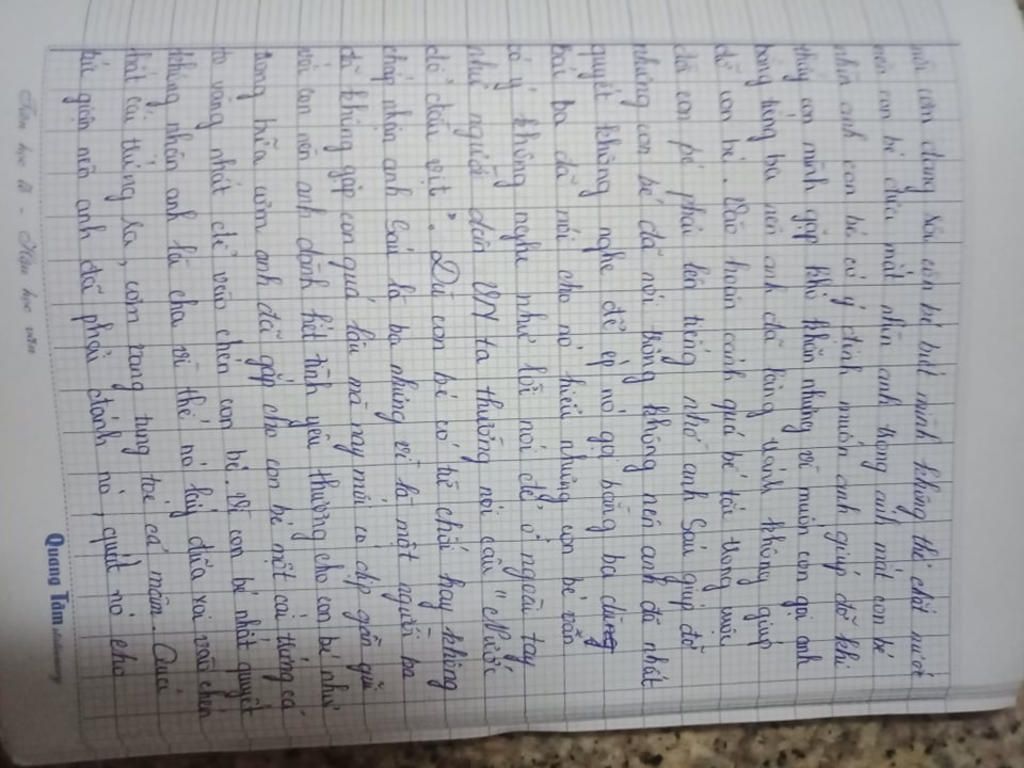 nồi cơm đang sôi còn bé biết mình không thể chắt nước
nên con bé đưa mắt nhìn anh trong ánh mắt con bé
nhìn anh con bé có ý định muốn anh giúp đỡ khi
thấy con mình gặp khó khăn nhưng vì muốn con gọi anh
bằng tiếng ba nên anh đã lảng tránh không giúp
đỡ con bé. Vào hoàn cảnh quá bế tắc trong việc
đó con bé phải lên tiếng nhờ anh Sáu giúp đỡ
nhưng con bé đã nói trống không nên anh đã nhất
quyết không nghe để ép nó gọi bằng ba dù
bác ba đã nói cho nó hiểu nhưng con bé vẫn
cố ý không nghe như lời nói để ở ngoài tay,
như người dân VN ta thường nói câu "Nước
đổ đầu vịt". Dù con bé có từ chối hay không
chấp nhận anh Sáu là ba nhưng vì là một người ba
đã không gặp con quá lâu mà nay mới có dịp gần gũi
với con nên anh dành hết tình yêu thương cho con bé như
trong bữa cơm anh đã gắp cho con bé một cái trứng cá
to vàng nhất để vào chén con bé. Vì con bé nhất quyết
không nhận anh là cha vì thế nó lấy đũa xoi vào chén
hất cái trứng ra, cơm văng tung tóe cả mâm. Quá
tức giận nên anh đã phải đánh nó, quát nó cho
Tiên học lễ - Hậu học văn
Quang Tâm stationery